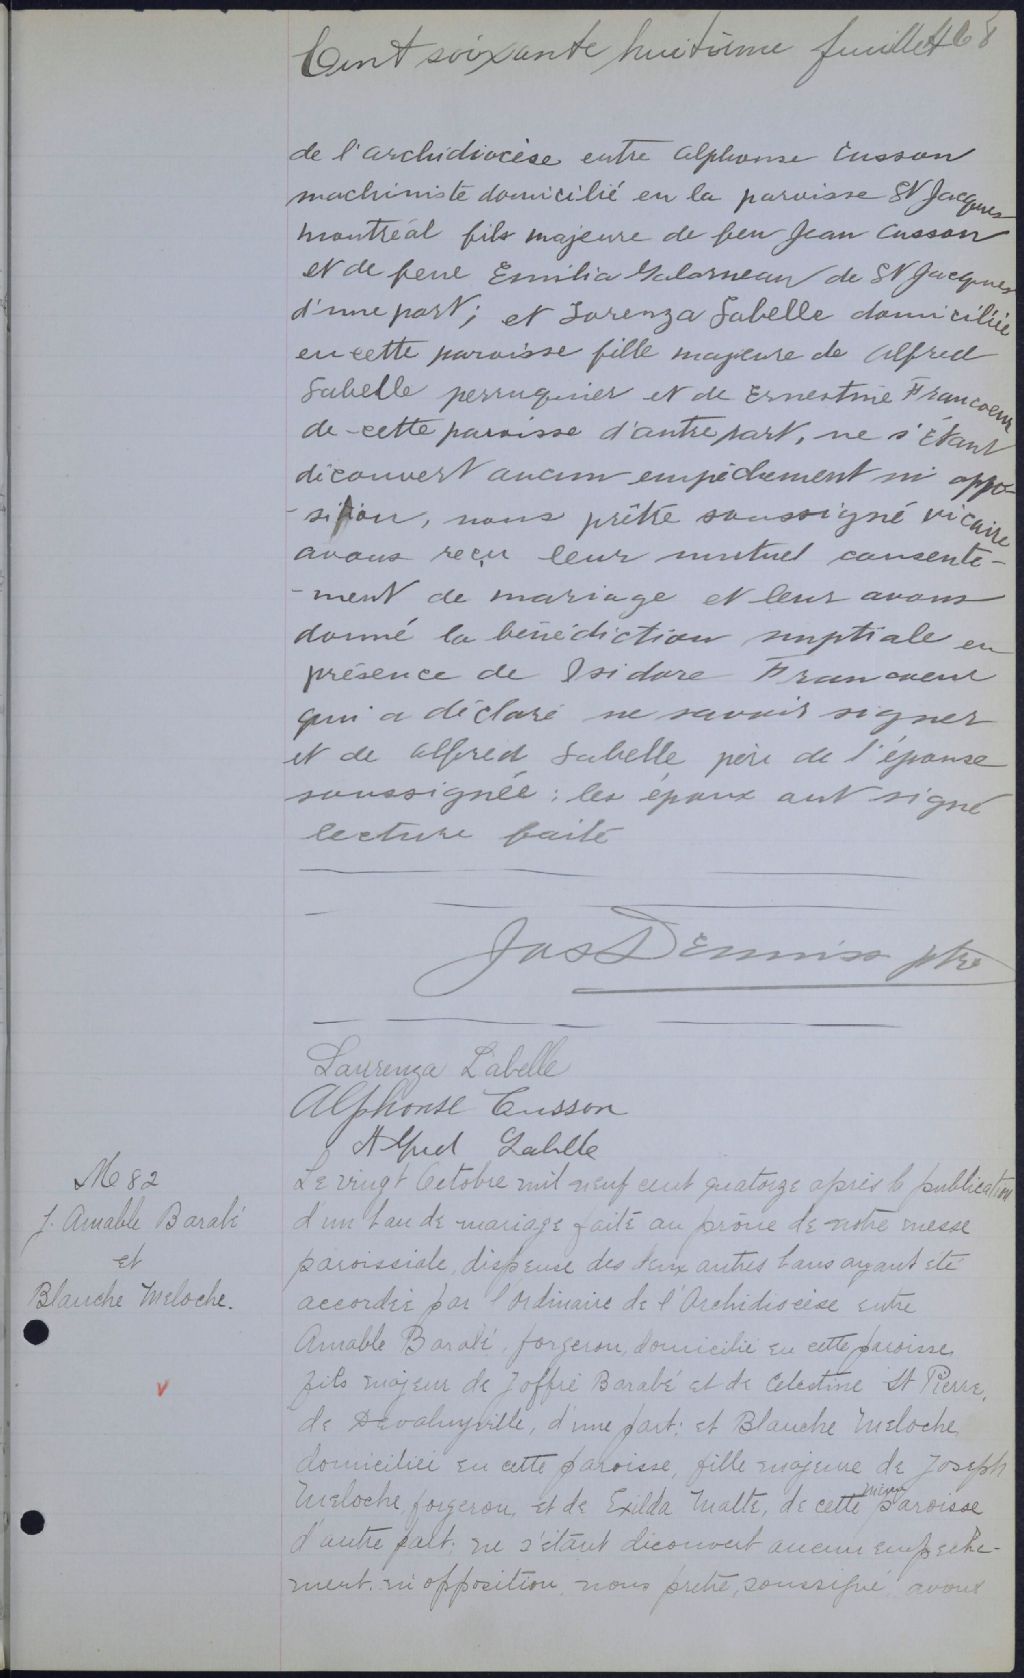 Cent soixante huitième feuillet 168
de l'archidiocèse entre Alphonse Cusson
machiniste domicilié en la paroisse St Jacques
Montréal fils majeure de feu Jean Cusson
et de feue Emilia Galarneau de St Jacques
d'une part; et Lorenza Labelle domiciliée
en cette paroisse fille majeure de Alfred
Labelle perruquier et de Ernestine Francoeur
de cette paroisse d'autre part, ne s'étant
découvert aucun empêchement ni oppo-
-sition, nous prêtre soussigné vicaire
avons reçu leur mutuel consente-
-ment de mariage et leur avons
donné la bénédiction nuptiale en
présence de Isidore Francoeur
qui a déclaré ne savoir signer
et de Alfred Labelle père de l'épouse
soussignée: les époux ont signé
lecture faite
Jos Dennis ptre
Laurenza Labelle
Alphonse Cusson
Alfred Labelle
M 82
J. Amable Barabé
et
Blanche Meloche.
Le vingt Octobre mil neuf cent quatorze après la publication
d'un ban de mariage faite au prône de notre messe
paroissiale, dispense des deux autres bans ayant été
accordée par l'Ordinaire de l'Archidiocèse entre
Amable Barabé, forgeron, domicilié en cette paroisse,
fils majeur de Joffré Barabé et de Celestine St Pierre,
de Devaluyville, d'une part; et Blanche Meloche,
domiciliée en cette paroisse, fille majeure de Joseph
Meloche, forgeron, et de Exilda Malte, de cette même paroisse
d'autre part; ne s'étant découvert aucun empêche-
ment ni opposition, nous prêtre, soussigné, avons